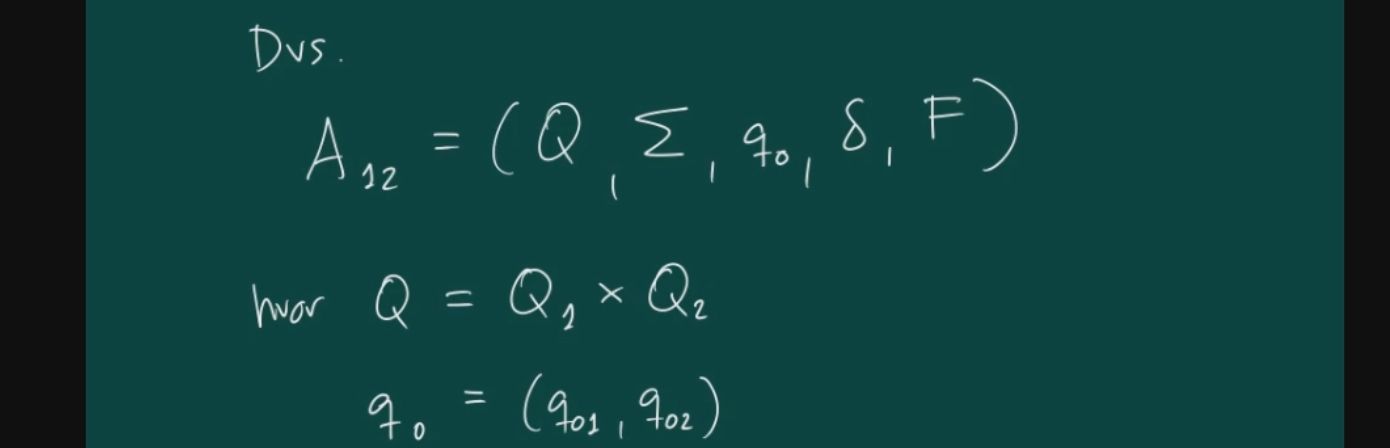 Dvs.
A₁₂ = (Q, Σ, q₀, δ, F)
hvor Q = Q₁ × Q₂
q₀ = (q₀₁, q₀₂)